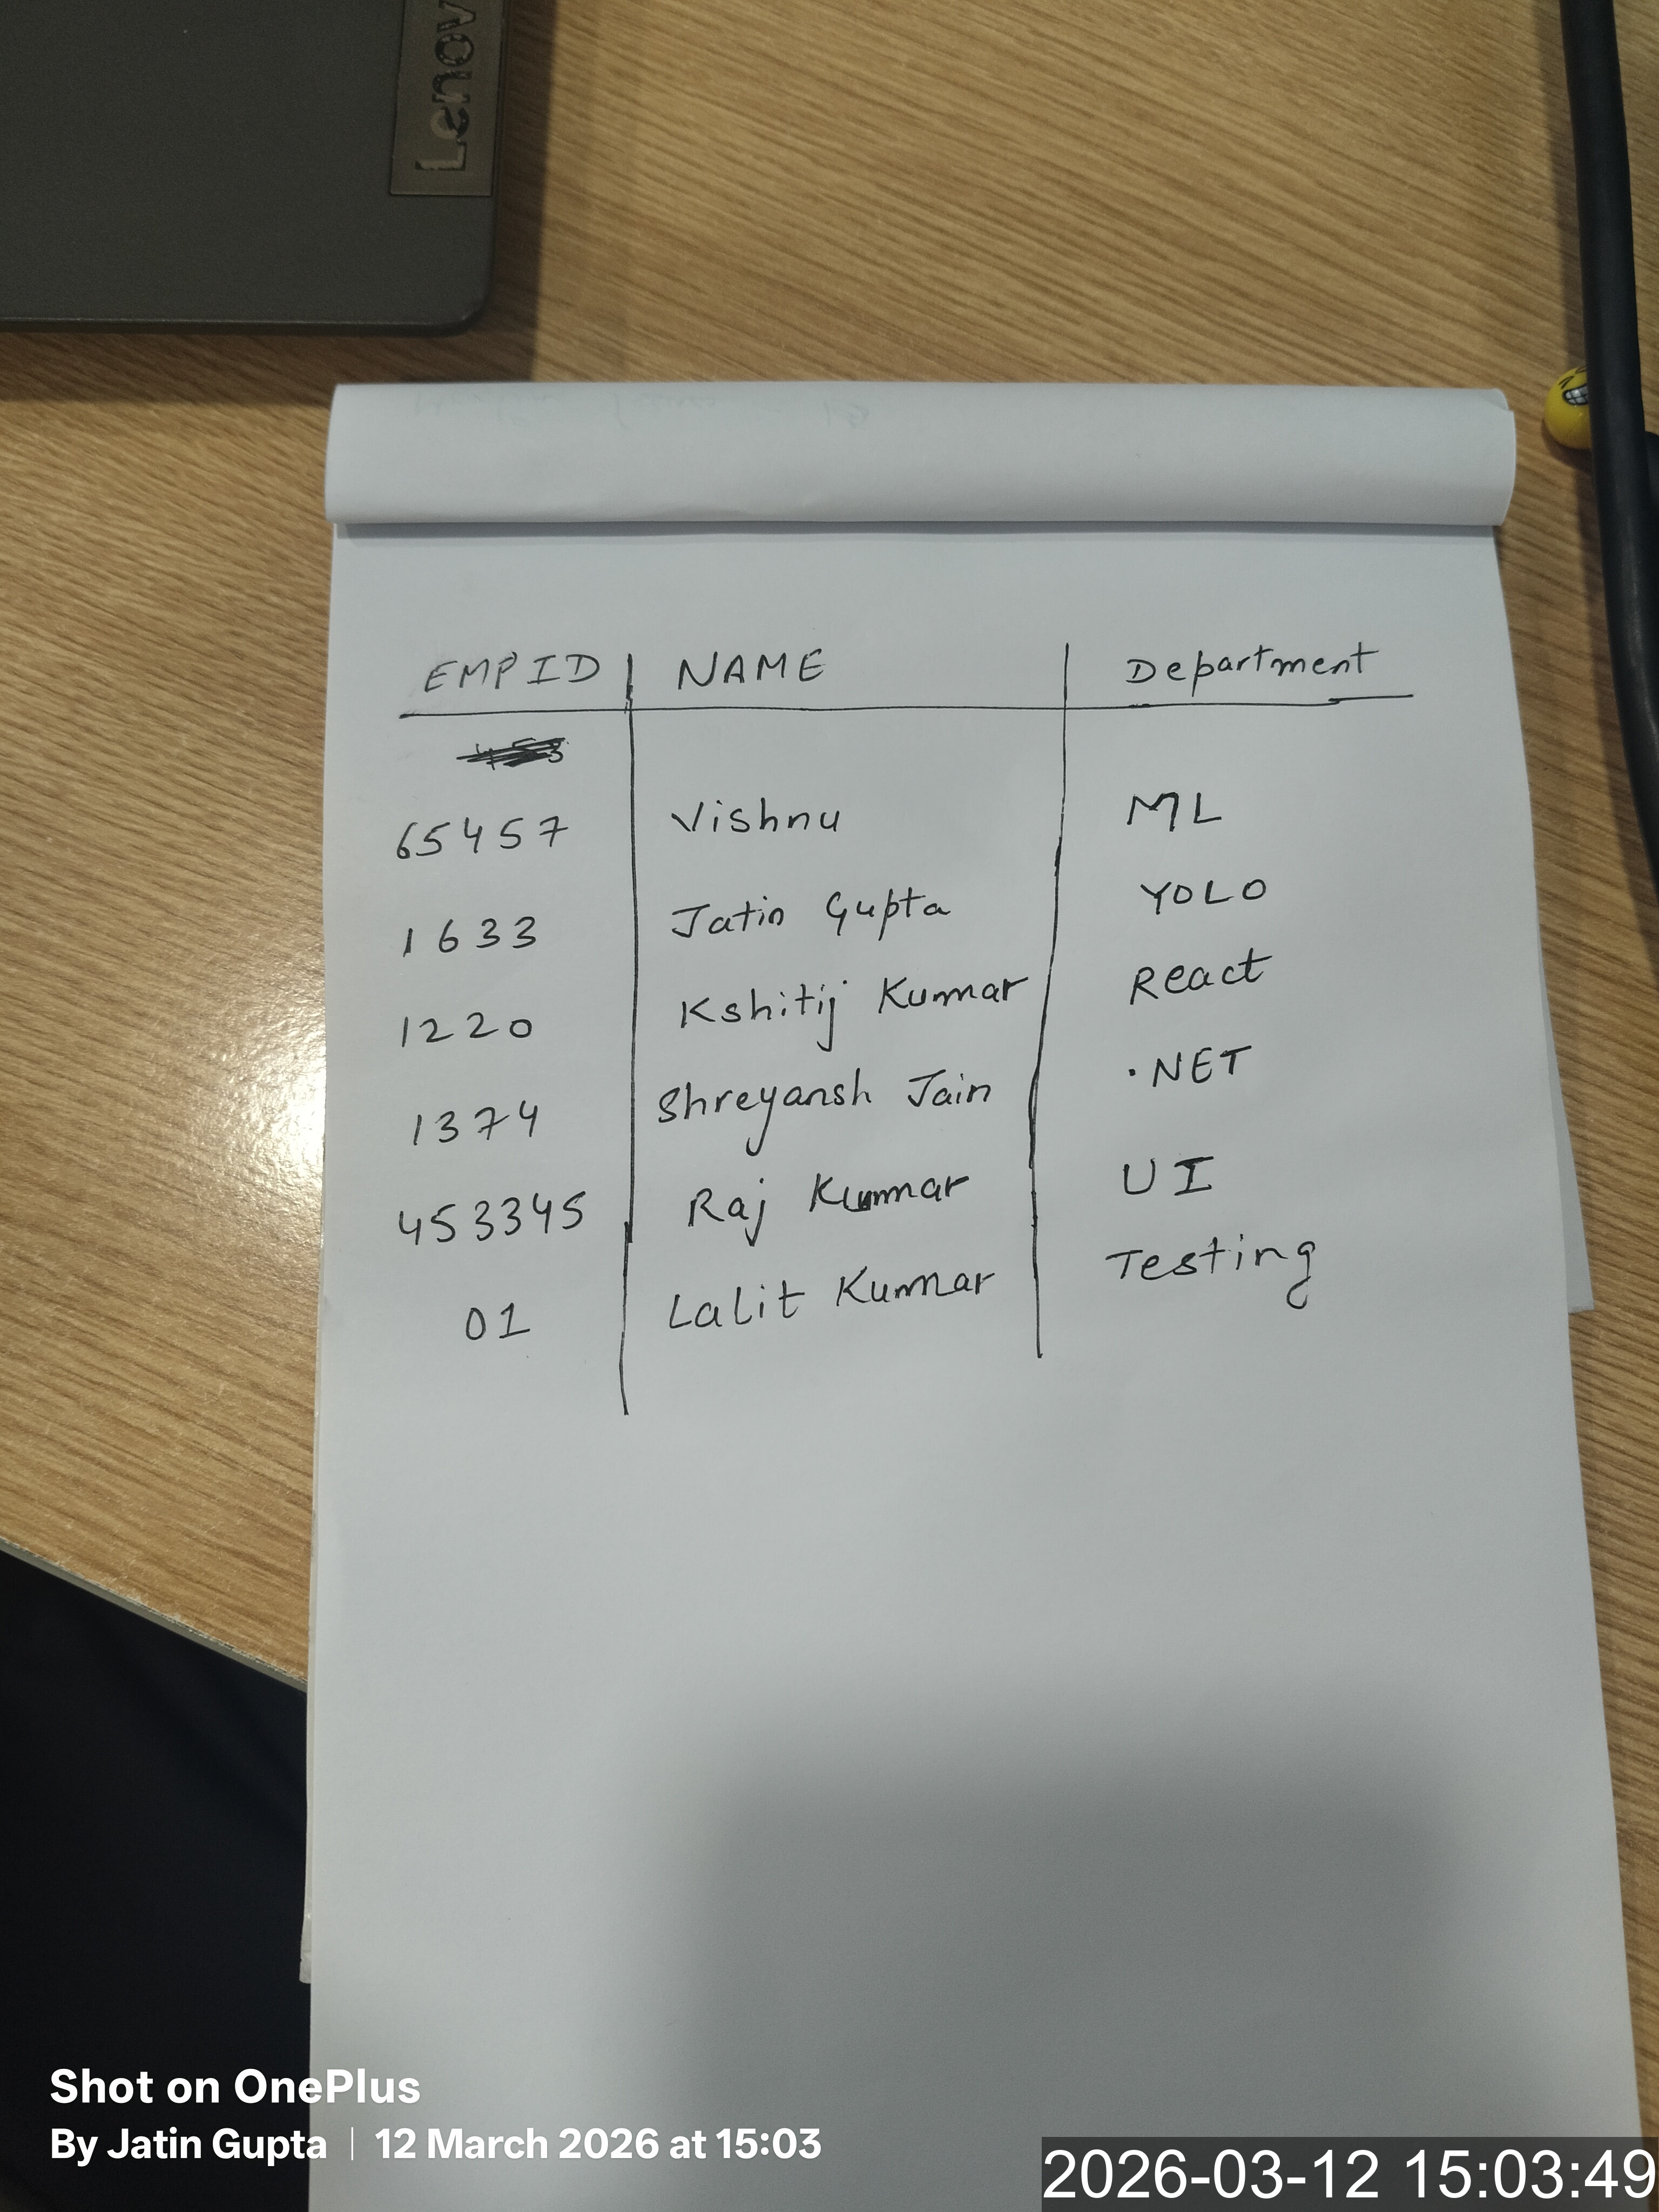 Lenov
EMP ID NAME Department
65457 Vishnu ML
1633 Jatin Gupta YOLO
1220 Kshitij Kumar React
1374 Shreyansh Jain .NET
453345 Raj Kumar UI
01 Lalit Kumar Testing
Shot on OnePlus
By Jatin Gupta | 12 March 2026 at 15:03
2026-03-12 15:03:49